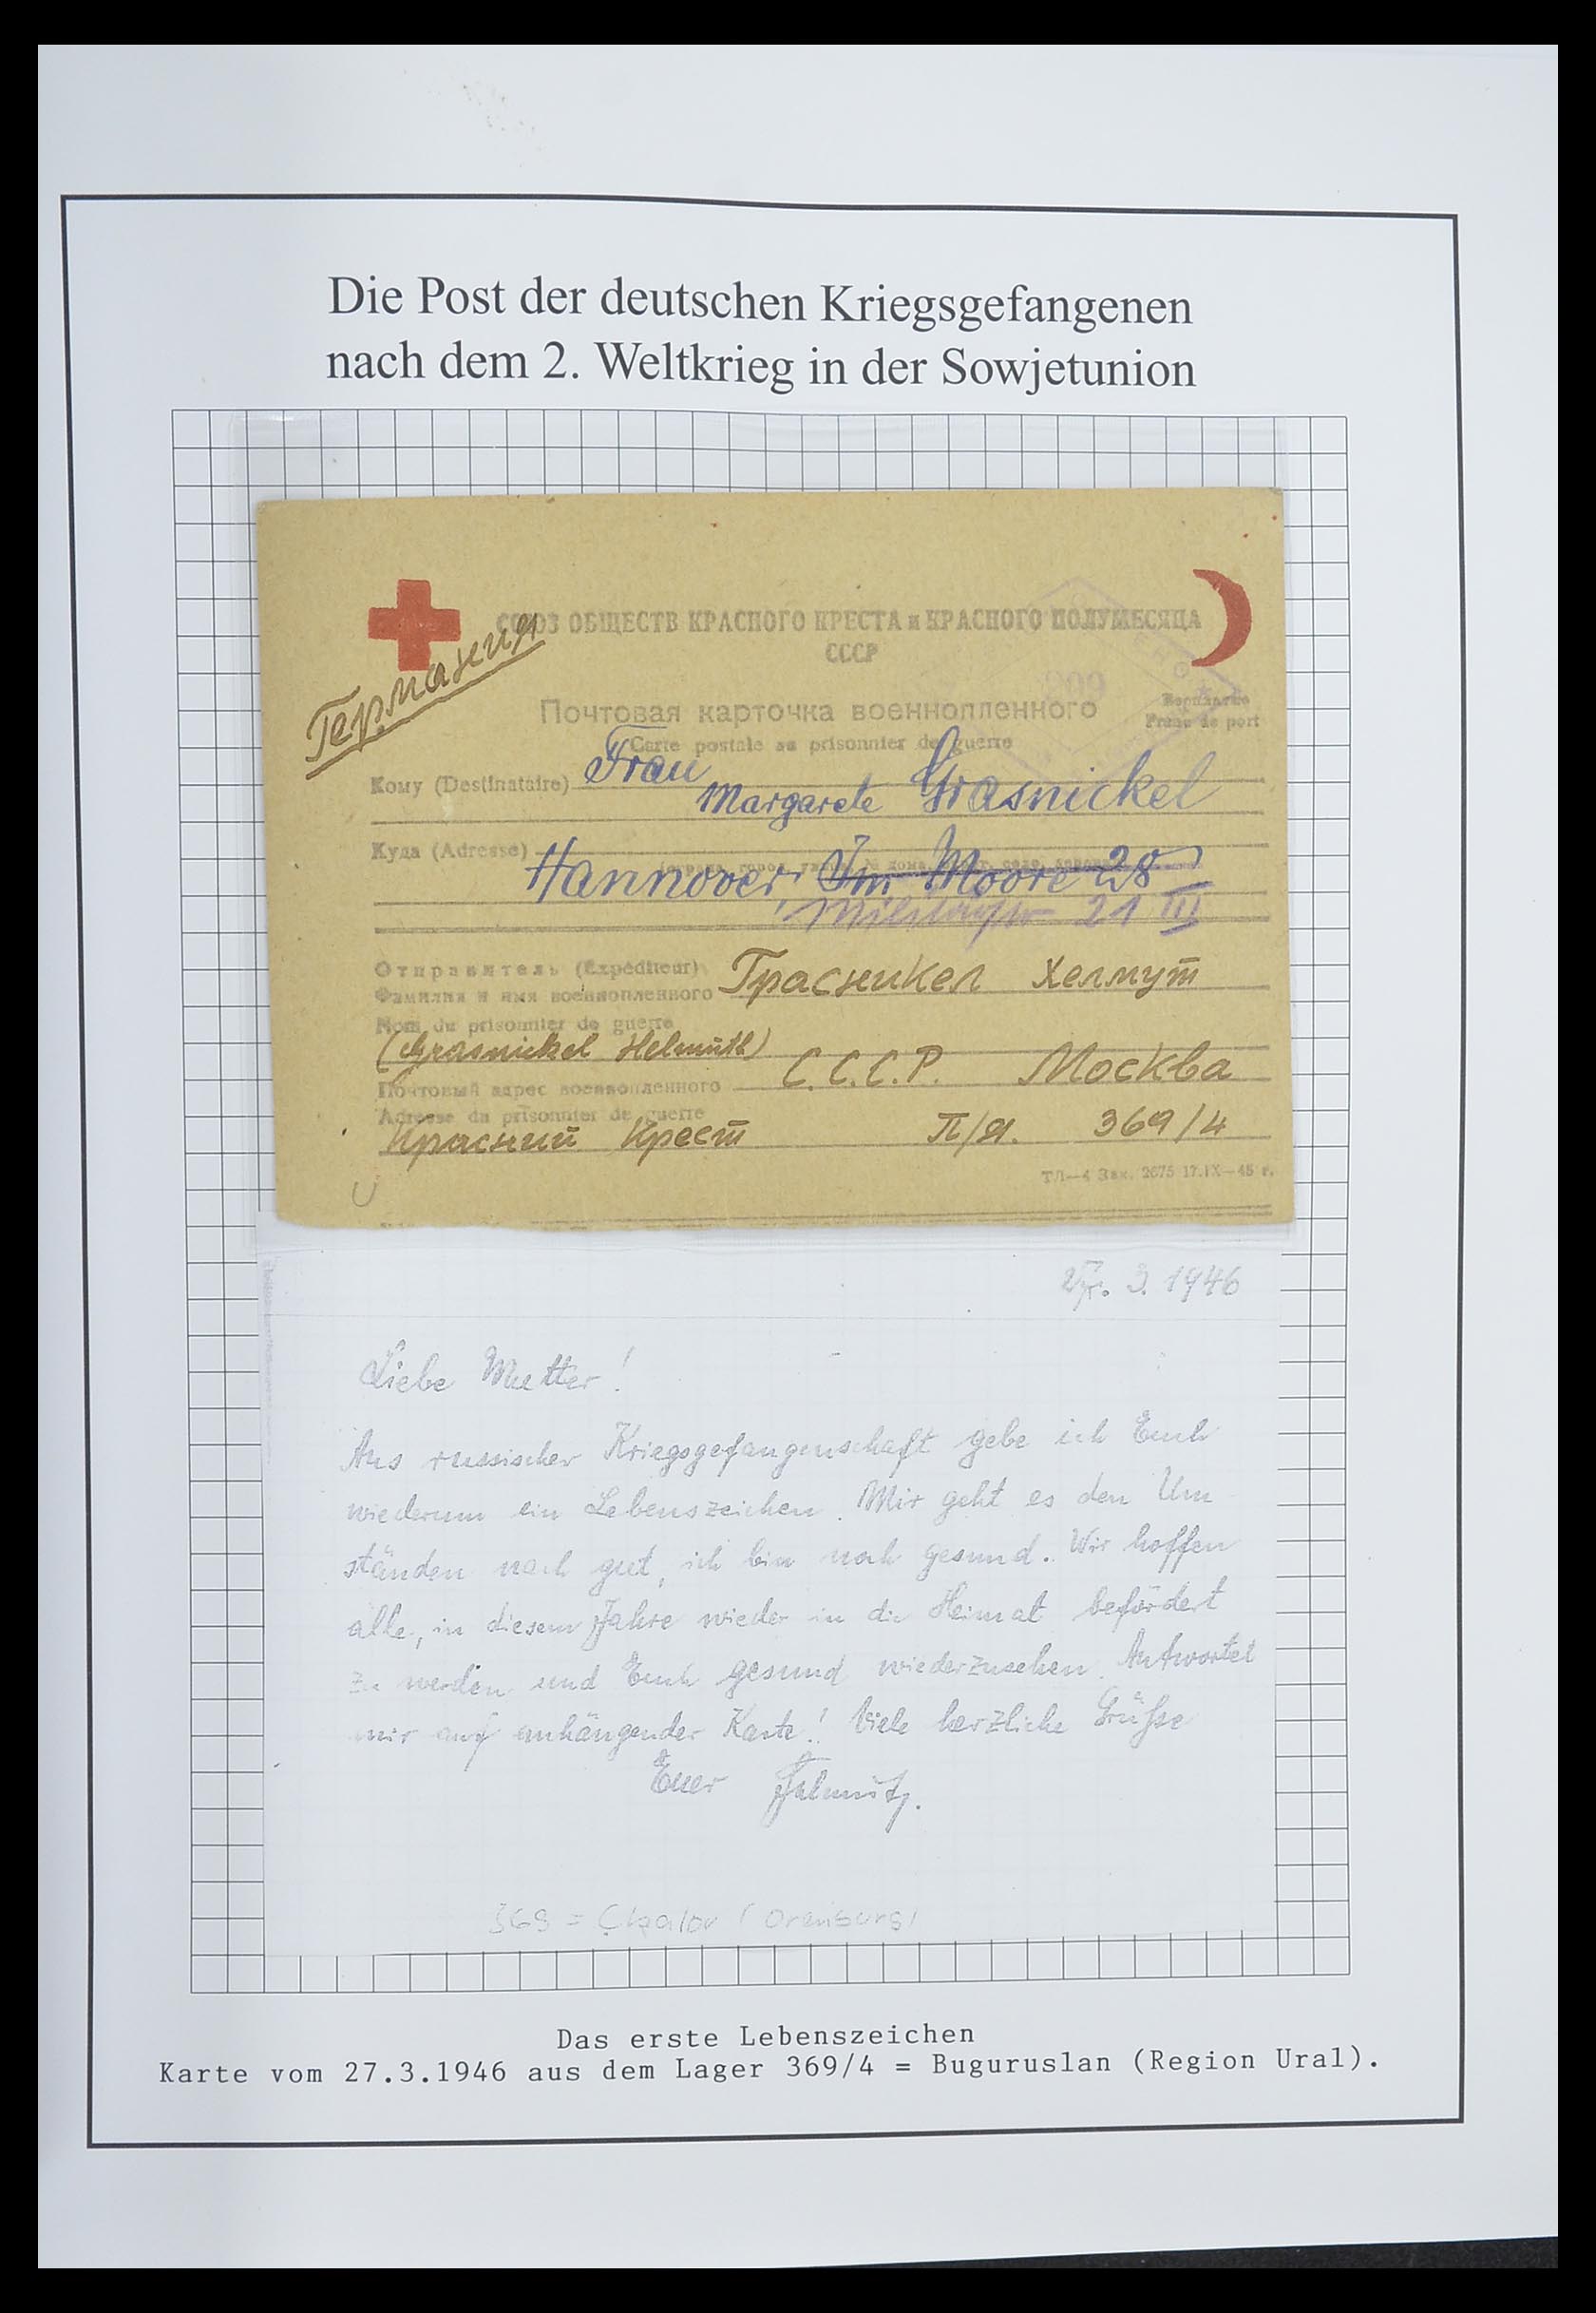 Die Post der deutschen Kriegsgefangenen
nach dem 2. Weltkrieg in der Sowjetunion
СОЮЗ ОБЩЕСТВ КРАСНОГО КРЕСТА и КРАСНОГО ПОЛУМЕСЯЦА
СССР
Германия
209
Почтовая карточка военнопленного
Бесплатно
Franc de port
Carte postale du prisonnier de guerre
Кому (Destinataire) Frau
Margarete Grasnickel
Куда (Adresse)
Hannover, Im Moore 28
21 III
Отправитель (Expéditeur)
Фамилия и имя военнопленного Грасникел Хелмут
Nom du prisonnier de guerre
(Grasnickel Helmuth)
Почтовый адрес военнопленного С.С.С.Р. Москва
Adresse du prisonnier de guerre
Красний Крест П/Я. 369/4
ТЛ—4 Зак. 2675 17.IX—45 г.
27. 3. 1946
Liebe Mutter!
Aus russischer Kriegsgefangenschaft gebe ich Euch
wiederum ein Lebenszeichen. Mir geht es den Um
ständen nach gut, ich bin noch gesund. Wir hoffen
alle, in diesem Jahre wieder in die Heimat befördert
zu werden und Euch gesund wiederzusehen. Antwortet
mir auf anhängender Karte! Viele herzliche Grüße
Euer Helmuth.
369 = Čkalov (Orenburg)
Das erste Lebenszeichen
Karte vom 27.3.1946 aus dem Lager 369/4 = Buguruslan (Region Ural).